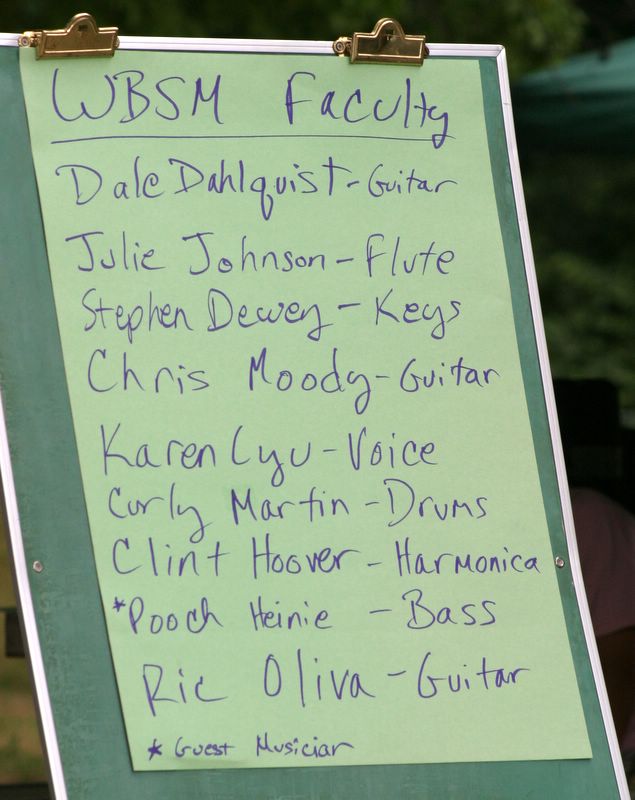 WBSM Faculty
Dale Dahlquist - Guitar
Julie Johnson - Flute
Stephen Dewey - Keys
Chris Moody - Guitar
Karen Lyu - Voice
Corly Martin - Drums
Clint Hoover - Harmonica
*Pooch Heinie - Bass
Ric Oliva - Guitar
* Guest Musician